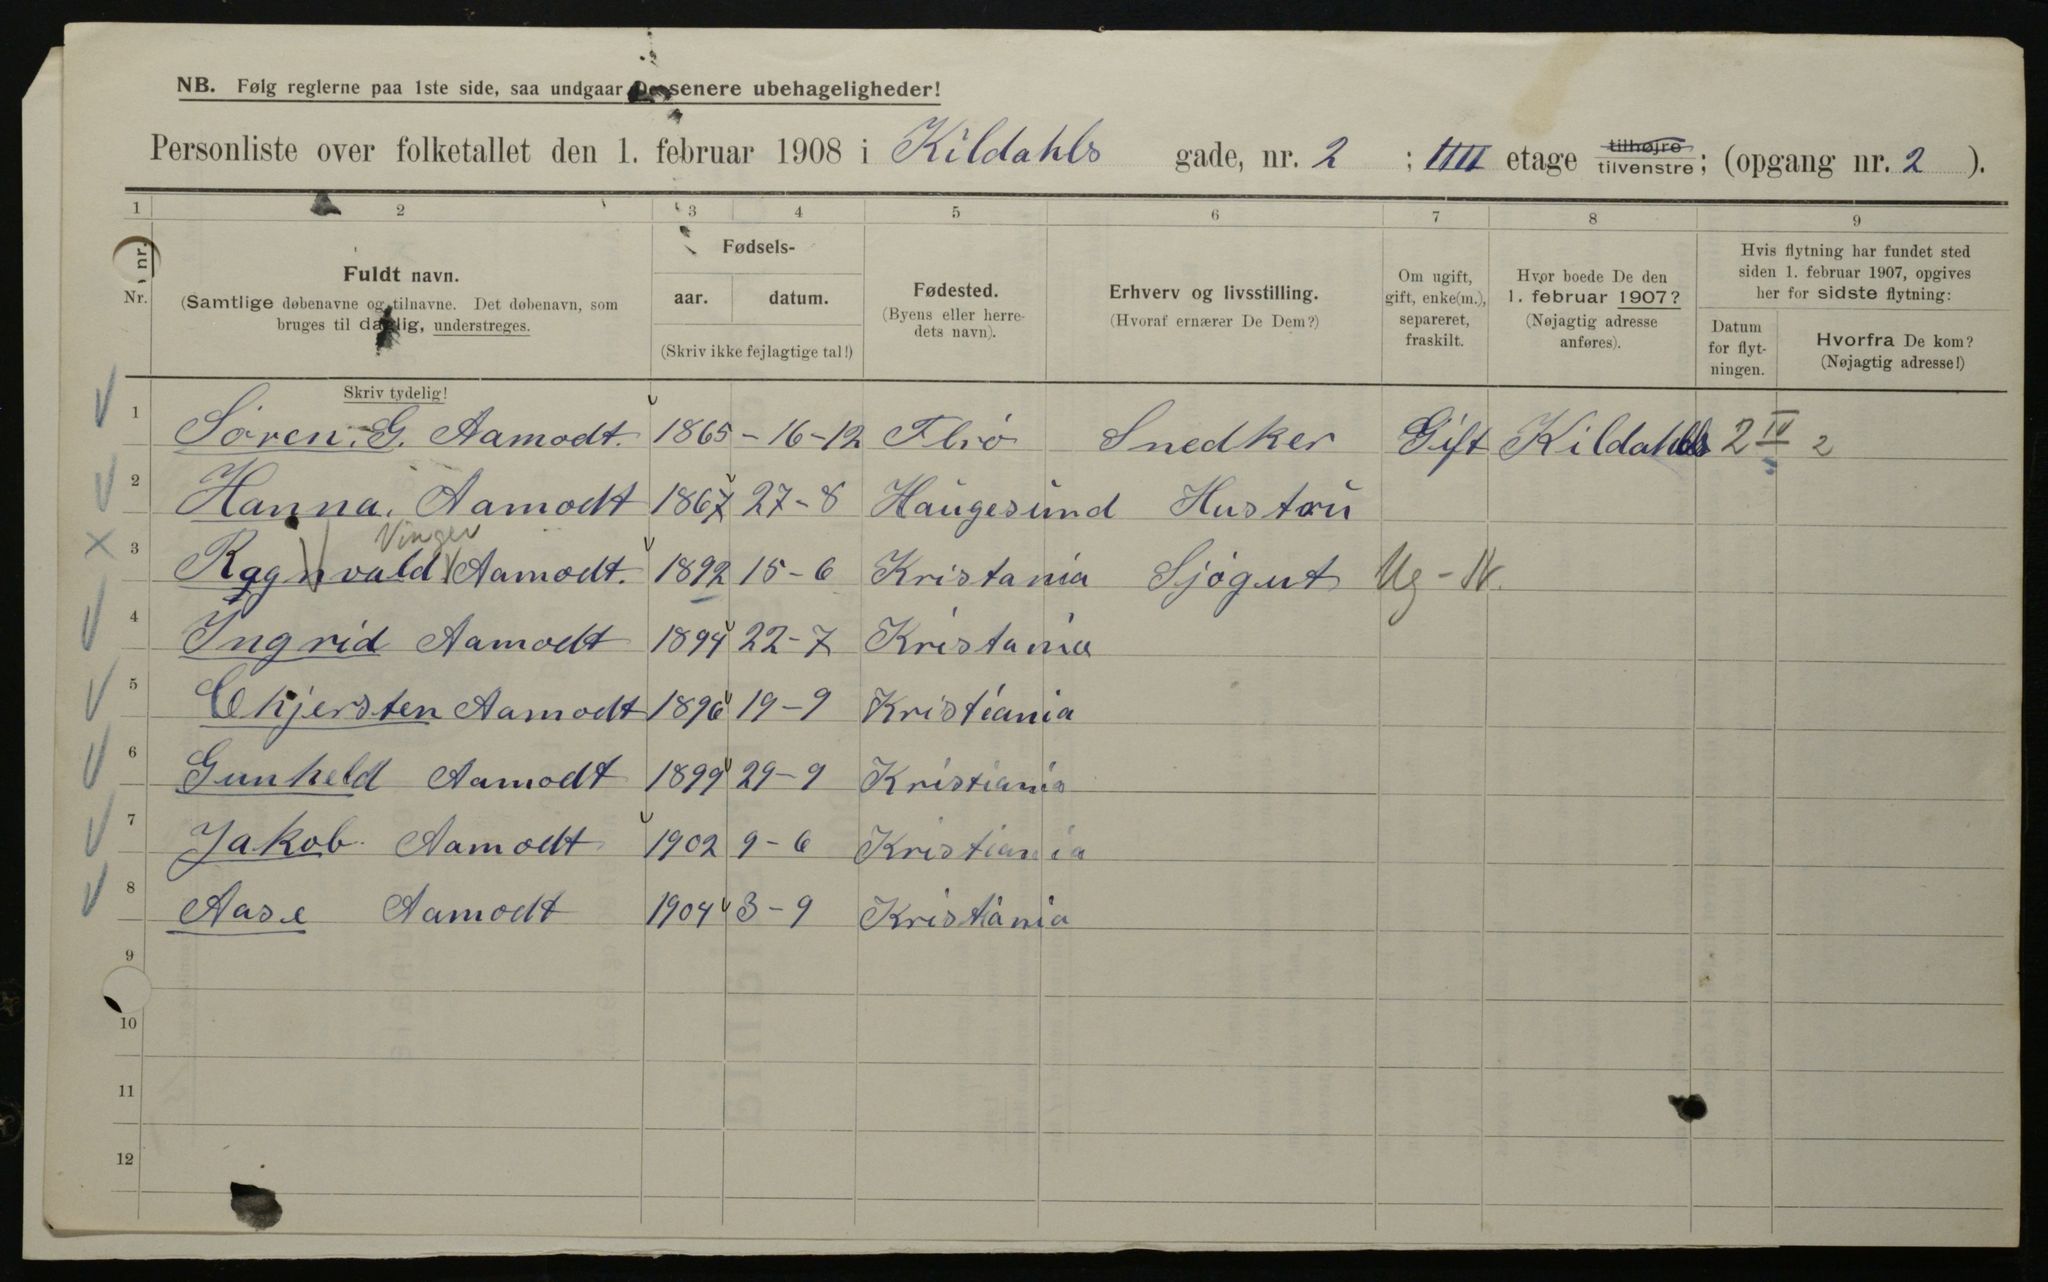 NB. Følg reglerne paa 1ste side, saa undgaar De senere ubehageligheder!
Personliste over folketallet den 1. februar 1908 i Kildahls gade, nr. 2 ; IIII etage tilhøjre tilvenstre; (opgang nr. 2 ).
1 2 3 4 5 6 7 8 9
Nr. nr.
Fuldt navn.
(Samtlige døbenavne og tilnavne. Det døbenavn, som
bruges til daglig, understreges.
Skriv tydelig!
Fødsels-
aar. datum.
(Skriv ikke fejlagtige tal!)
Fødested.
(Byens eller herre-
dets navn).
Erhverv og livsstilling.
(Hvoraf ernærer De Dem?)
Om ugift,
gift, enke(m.),
separeret,
fraskilt.
Hvor boede De den
1. februar 1907?
(Nøjagtig adresse
anføres).
Hvis flytning har fundet sted
siden 1. februar 1907, opgives
her for sidste flytning:
Datum
for flyt-
ningen.
Hvorfra De kom?
(Nøjagtig adresse!)
1 Søren. G. Aamodt. 1865 - 16-12 Flrö Snedker Gift Kildahls 2 IV 2
2 Hanna. Aamodt 1867 27-8 Haugesund Hustru
Vinger
3 Ragnvald Aamodt. 1892 15-6 Kristania Sjøgut Ug - N.
4 Ingrid Aamodt 1894 22-7 Kristania
5 Kjersten Aamodt 1896 19-9 Kristiania
6 Gunheld Aamodt 1899 29-9 Kristiania
7 Jakob Aamodt 1902 9-6 Kristiania
8 Aase Aamodt 1904 3-9 Kristiania
9
10
11
12